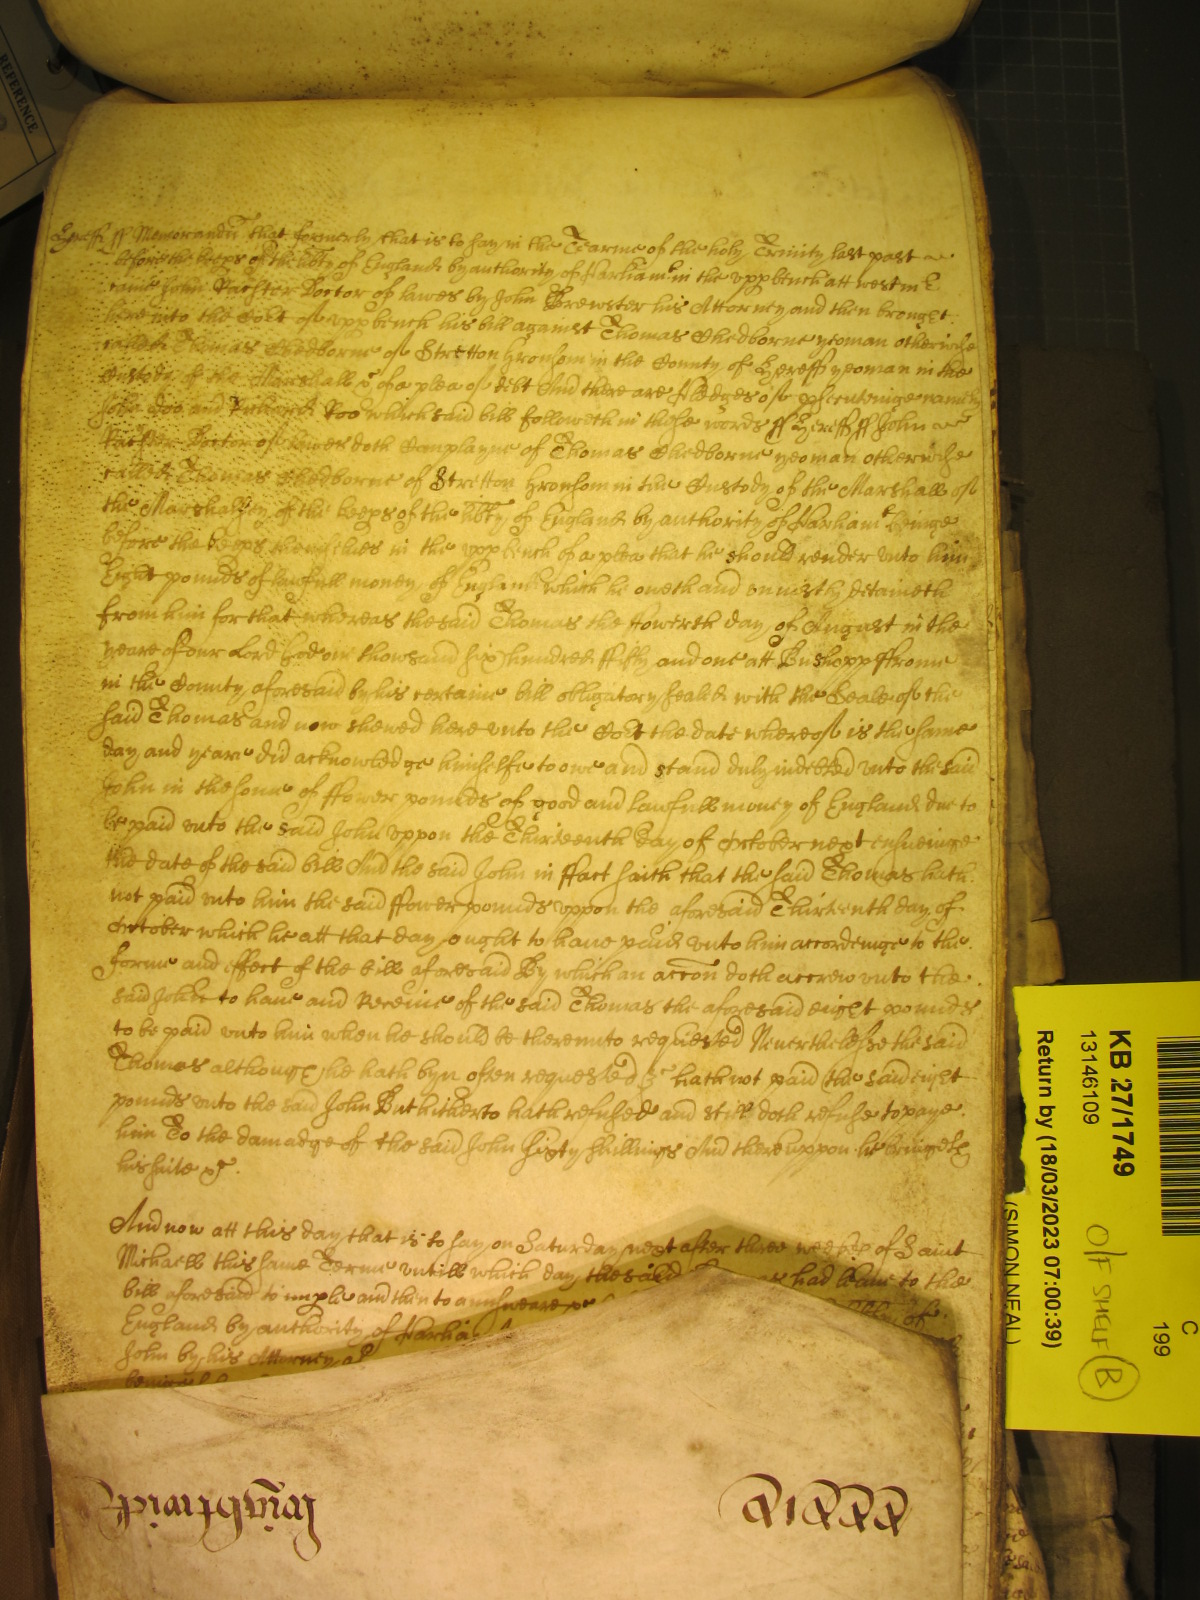 Hereff ff Memorandū that formerly that is to say in the Tearme of the holy Trinity last past
before the keeps of the libty of England by authority of Parliamt in the vpp bench att westm
came John Doctor of lawes by John Brewster his Attorney and then brought
here into the Cort of vpp bench his bill against Thomas Chedborne yeoman otherwise
called Thomas Chedborne of Stretton Gronsom in the County of Hereff yeoman in the
Custody of the Marshall &c of a plea of debt And there are pledges of psecutinge namely
John Doo and Richard Roo which said bill followeth in these words ff Hereff ff John
Doctor of lawes doth Complayne of Thomas Chedborne yeoman otherwise
called Thomas Chedborne of Stretton Gronsom in the Custody of the Marshall of
the Marshalsey of the keeps of the libty of England by authority of Parliamt beinge
before the keeps themselues in the vpp bench of a plea that he should render vnto him
Eight pounds of lawfull money of England which he oweth and vniustly detaineth
from him for that whereas the said Thomas the fowerth day of August in the
yeare of our Lord God one thowsand six hundred fifty and one att Bushopp ffrome
in the County aforesaid by his certaine bill obligatory sealed with the Seale of the
said Thomas and now shewed here vnto the Cort the date whereof is the same
day and yeare did acknowledge himselfe to owe and stand duly indebted vnto the said
John in the some of ffower pounds of good and lawfull money of England due to
be paid vnto the said John vppon the Thirteenth day of October next ensueinge
the date of the said bill And the said John in ffact saith that the said Thomas hath
not paid vnto him the said ffower pounds vppon the aforesaid Thirteenth day of
October which he att that day ought to haue paid vnto him accordeinge to the
forme and effect of the bill aforesaid By which an accon doth accrew vnto the
said John to haue and Receiue of the said Thomas the aforesaid eight pounds
to be paid vnto him when he should be therevnto requested Neverthelesse the said
Thomas although he hath byn often requested &c hath not paid the said eight
pounds vnto the said John But hitherto hath refused and still doth refuse to paye
him To the damadge of the said John sixty shillings And therevppon he bringeth
his suite &c.
And now att this day that is to say on Saturday next after three weekes of Saint
Michaell this same Terme vntill which day the said had leaue to the
bill aforesaid to imple and then to annsweare &c
England by authority of Parlia
John by his Attorney
REFERENCE
KB 27/1749
13146109
Return by (18/03/2023 07:00:39)
(SIMON NEAL)
C
199
O/F SHELF B